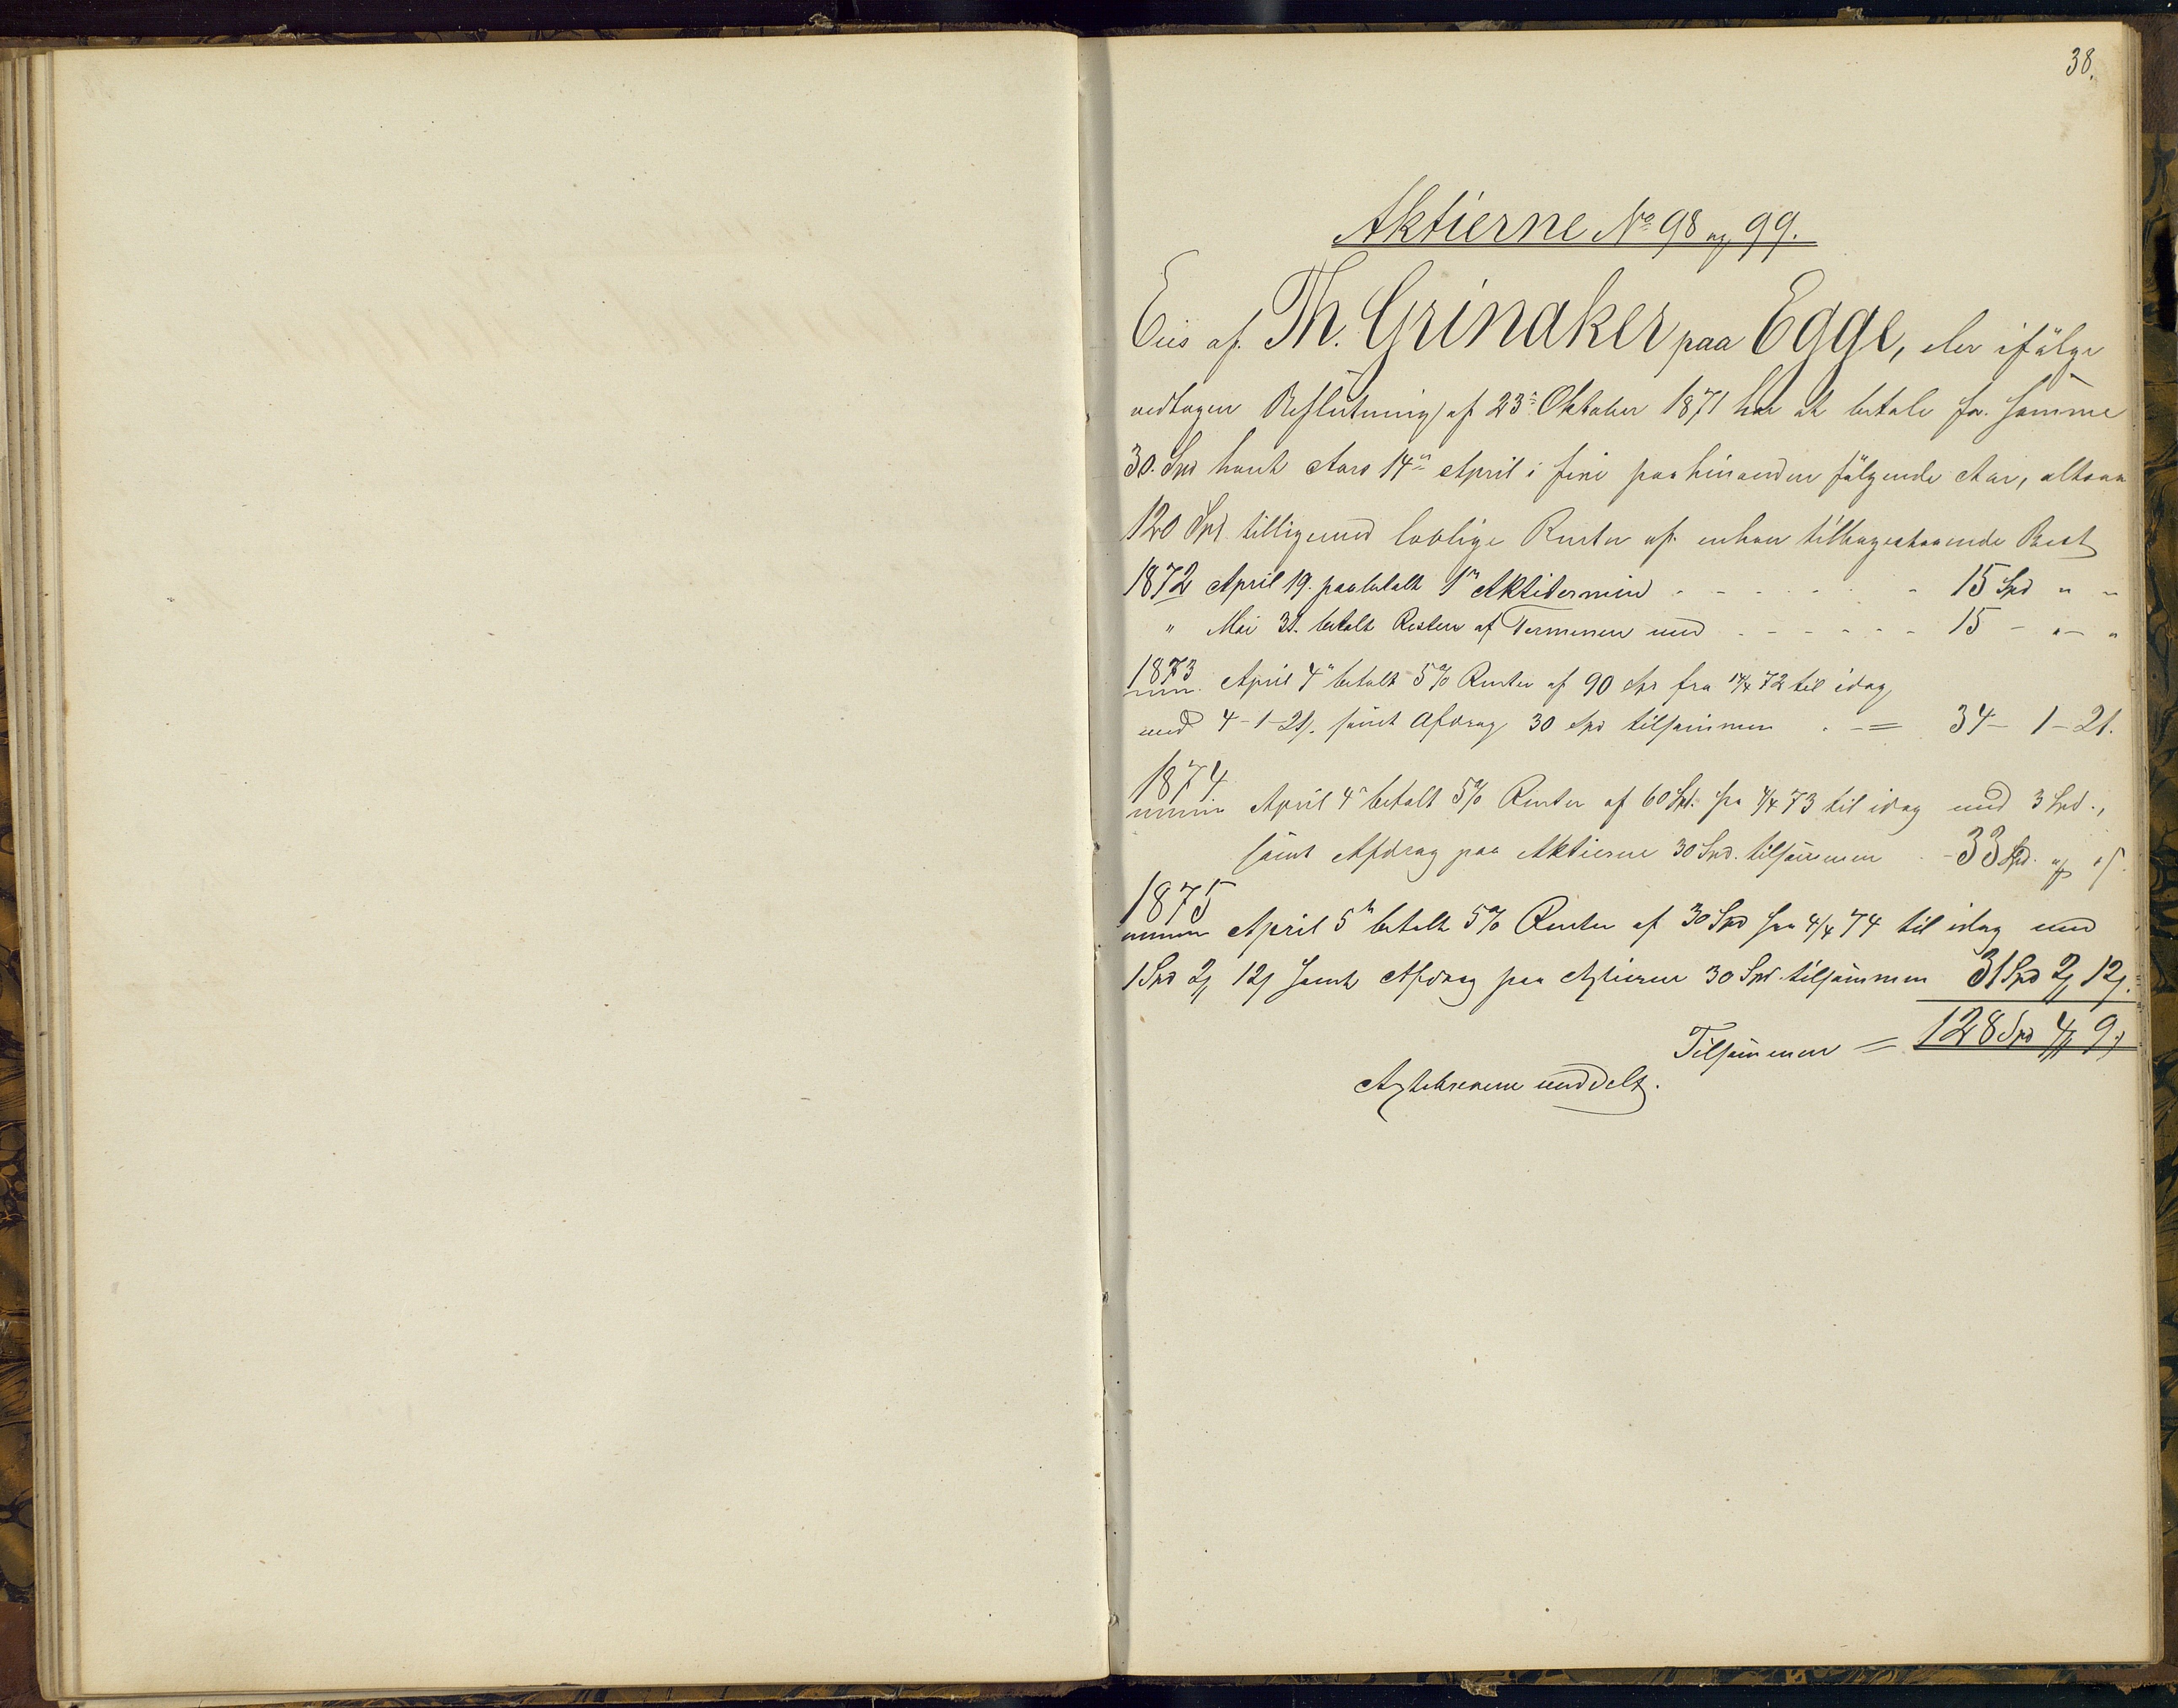 38.
Aktierne No 98 og 99.
Eies af Th. Grinaker paa Egge, der ifølge
vedtagen Beslutning af 23de Oktober 1871 har at betale for samme
30. Spd hvert Aars 14de April i fire paa hinanden følgende Aar, altsaa
120 Spd. tilligemed lovlige Renter af enhver tilbagestaaende Rest
1872 April 19. paabetalt 1n Aktietermin - - - - - - 15 Spd " "
" Mai 31. betalt Resten af Terminen med - - - - - - 15 - " - "
1873 April 4n betalt 5% Renter af 90 Spd fra 14/4 72 til idag
med 4-1-21. samt Afdrag 30 Spd tilsammen - - = 34 - 1 - 21.
1874. April 4n betalt 5% Renter af 60 Spd. fra 4/4 73 til idag med 3 Spd.,
samt Afdrag paa Aktierne 30 Spd. tilsammen - 33 Spd.
1875 April 5n betalt 5% Renter af 30 Spd fra 4/4 74 til idag med
1 Spd 2 12 samt Afdrag paa Aktierne 30 Spd. tilsammen 31 Spd 2 12.
Tilsammen = 128 Spd 4 9
meddelt.